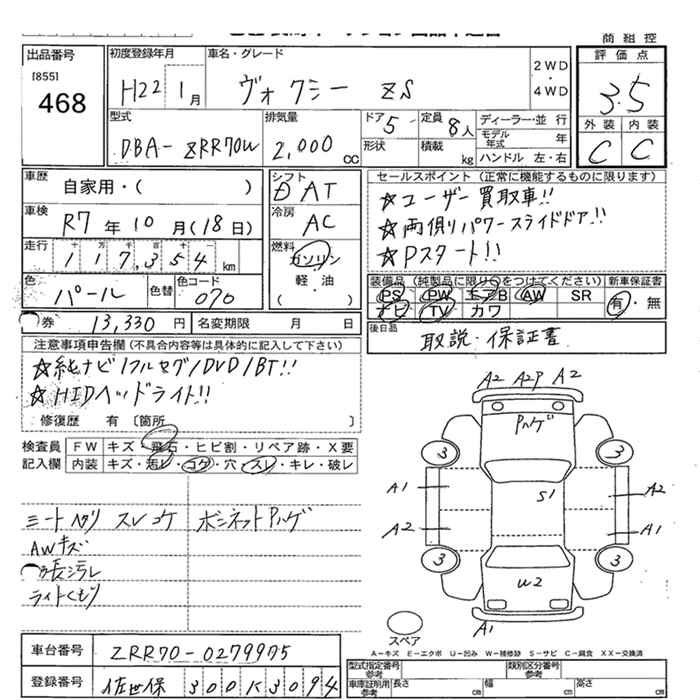 商 組 控
出品番号
[855]
468
初度登録年月
H22 1 月
車名・グレード
ヴォクシー ZS
2WD
・
4WD
評 価 点
3.5
外 装 内 装
C C
型式
DBA- ZRR70W
排気量
2,000 cc
ドア 5
形状
定員 8 人
積載 kg
ディーラー・並 行
モデル年式 年
ハンドル 左・右
車歴
自家用・( )
車検
R7 年 10 月(18 日)
走行
十 万 千 百 十 一
117,354 km
色
パール
色替
色コード
070
シフト
D AT
冷房
AC
燃料
ガソリン
軽・油
( )
セールスポイント (正常に機能するものに限ります)
☆ユーザー買取車!!
☆両側パワースライドドア!!
☆Pスタート!!
装備品 (純製品に限り○をつけてください)
PS PW エアB AW SR
ナビ TV カワ
新車保証書
有・無
後日品
取説・保証書
券 13,330 円
名変期限 月 日
注意事項申告欄(不具合内容等は具体的に記入して下さい)
☆純ナビ/フルセグ/DVD/BT!!
☆HIDヘッドライト!!
修復歴 有 〔箇所 〕
検査員
記入欄
FW キズ・飛石・ヒビ割・リペア跡・X要
内装 キズ・汚レ・コゲ・穴・スレ・キレ・破レ
シートヘタリ スレ コゲ ボンネットPハゲ
AWキズ
ライトくもり
A2 A2P A2
Pハゲ
3 3
A1 A2
S1
A2 A1
3 3
U2
A1
スペア
A-キズ E-エクボ U-凹み W-補修跡 S-サビ C-腐食 XX-交換済
車台番号
ZRR70-0279975
登録番号
佐世保 300 に 3094
型式指定番号
参考
類別区分番号
参考
車庫証明用
参考
長さ cm
幅 cm
高さ cm